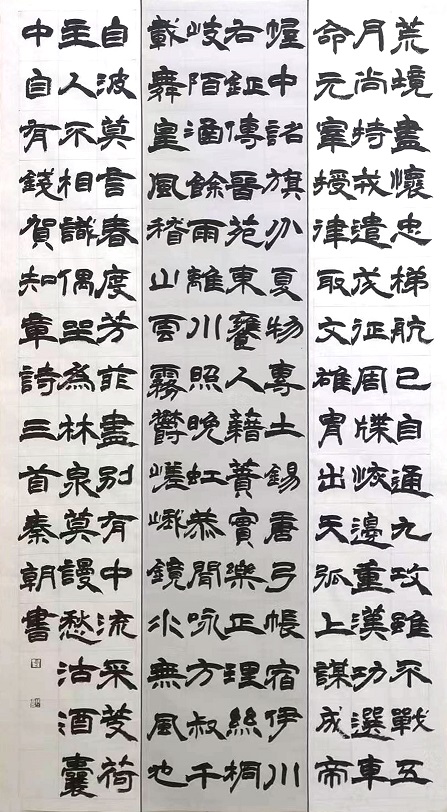 荒境盡懷忠梯航已自通九攻雖不戰五
月尚持戎遣戍征周牒恢邊重漢功選車
命元宰授律取文雄冑出天弧上謀成帝
幄中詔旗分夏物專土錫唐弓帳宿伊川
右鉦傳晉苑東饔人藉蕡實樂正理絲桐
岐陌涵餘雨離川照晚虹恭聞咏方叔千
載舞皇風稽山雲霧鬱嵯峨鏡水無風也
自波莫言春度芳菲盡別有中流采芰荷
主人不相識偶坐為林泉莫謾愁沽酒囊
中自有錢賀知章詩三首秦朝書